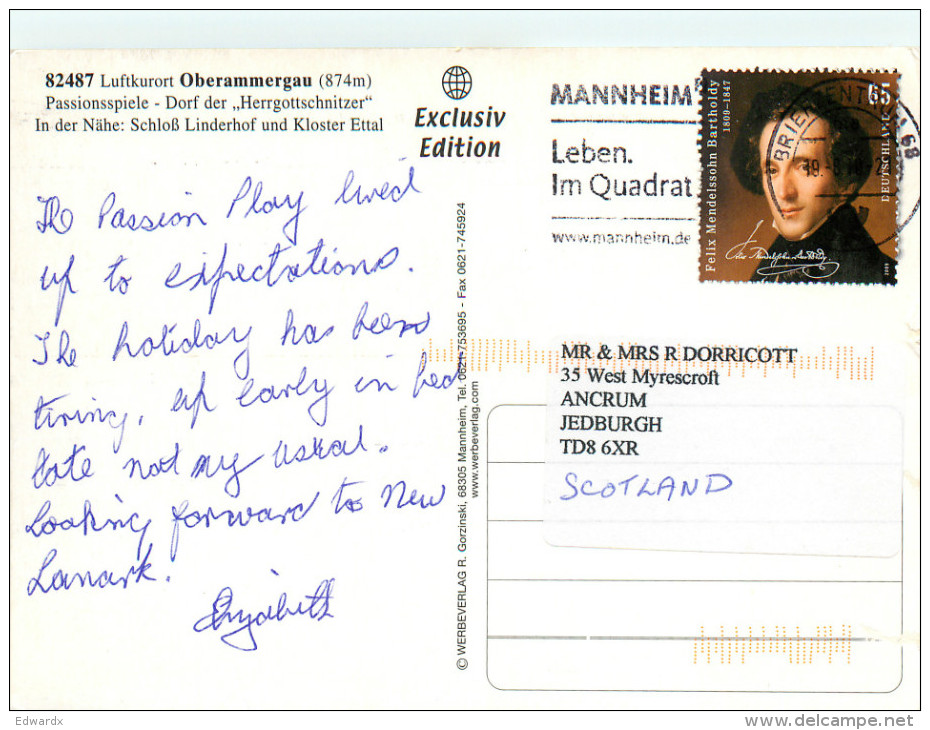 82487 Luftkurort Oberammergau (874m)
Passionsspiele - Dorf der „Herrgottschnitzer"
In der Nähe: Schloß Linderhof und Kloster Ettal
Exclusiv
Edition
The Passion Play lived
up to expectations.
The holiday has been
tiring, up early in bed
late not my usual.
Looking forward to New
Lanark.
Elizabeth
© WERBEVERLAG R. Gorzinski, 68305 Mannheim, Tel. 0621-753695 - Fax 0621-745924
www.werbeverlag.com
MANNHEIM
Leben.
Im Quadrat
www.mannheim.de
BRIEFZENTRUM 68
65
DEUTSCHLAND
Felix Mendelssohn Bartholdy
1809–1847
2009
MR & MRS R DORRICOTT
35 West Myrescroft
ANCRUM
JEDBURGH
TD8 6XR
SCOTLAND
Edwardx
www.delcampe.net